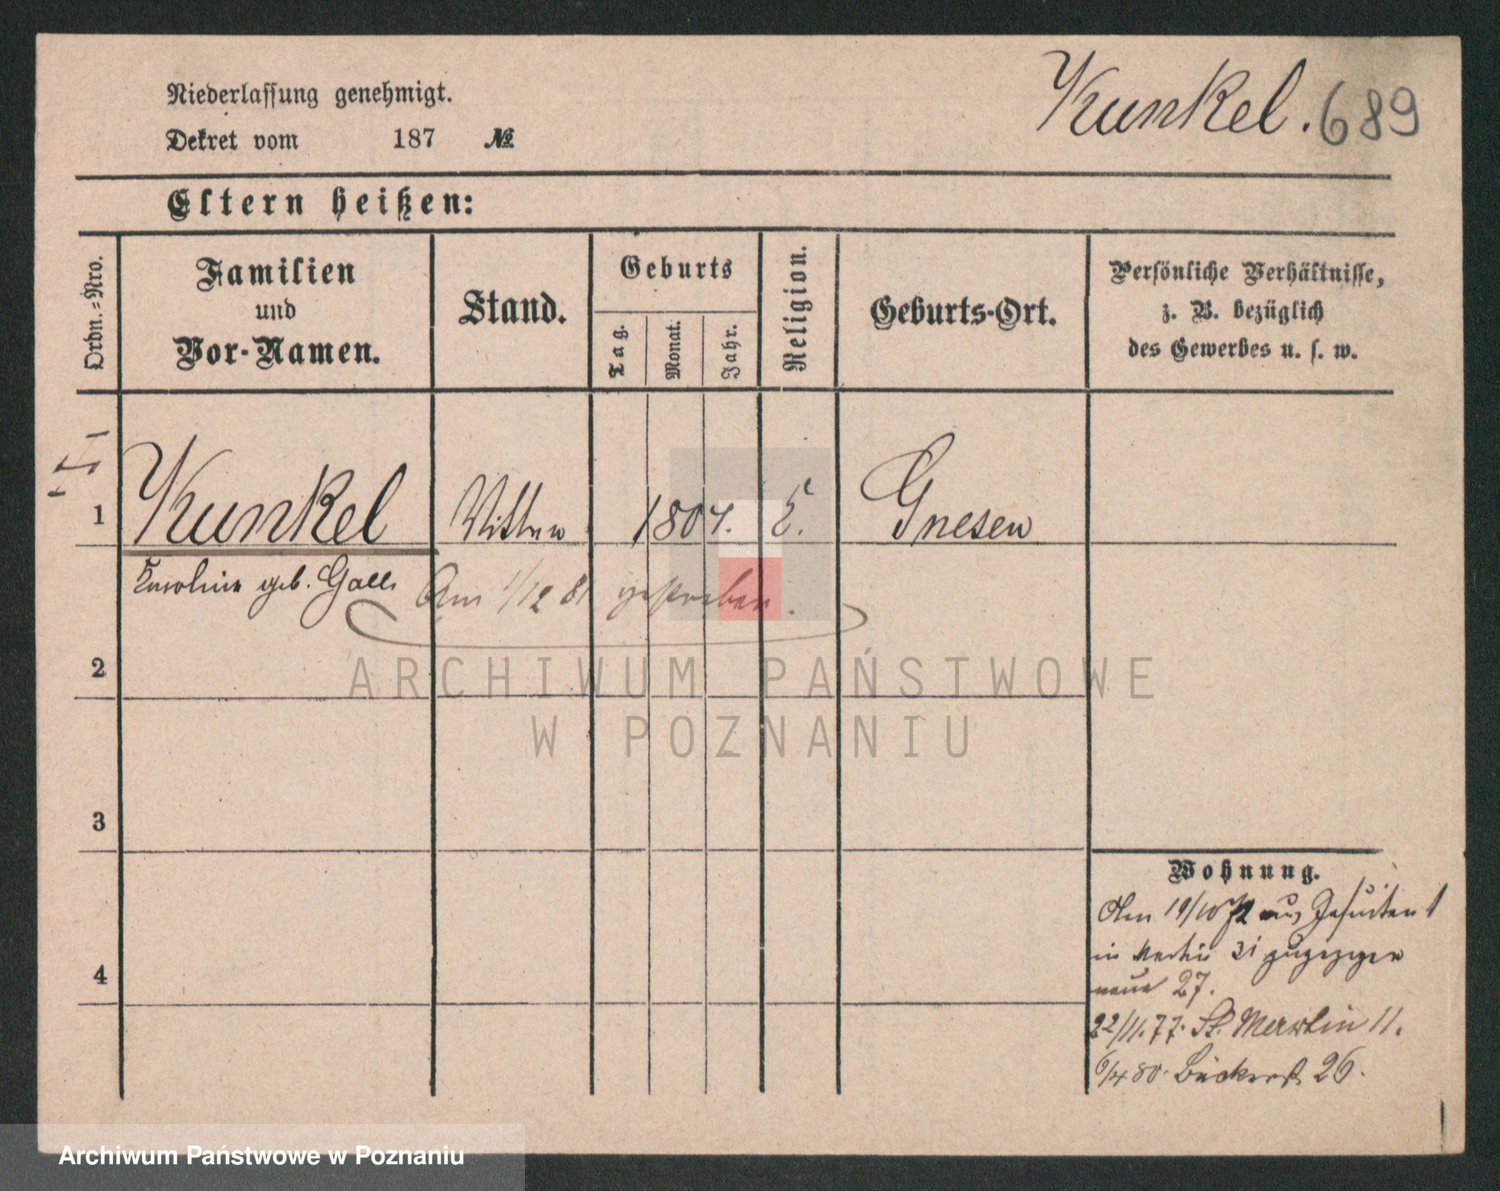 Niederlassung genehmigt.
Kunkel. 689
Dekret vom 187 №
Eltern heißen:
Ordn.-Nro.
Familien
und
Vor-Namen.
Stand.
Geburts
Tag.
Monat.
Jahr.
Religion.
Geburts-Ort.
Persönliche Verhältnisse,
z. B. bezüglich
des Gewerbes u. s. w.
1 Kunkel 1804. Gnesen
Karoline geb. Galle Am 1/12 81 gestorben.
2
3
4
Wohnung.
Am 19/10 72 aus Jesuiten 1
in Martin 31 zugezogen
neue 27.
22/11.77. St. Martin 11.
6/4 80. Bäckerst 26.
ARCHIWUM PAŃSTWOWE
W POZNANIU
Archiwum Państwowe w Poznaniu